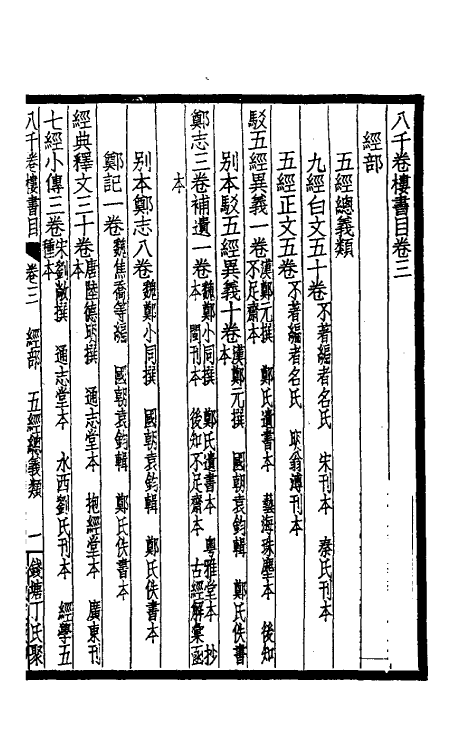 八千卷樓書目卷三
經部
五經總義類
九經白文五十卷不著編者名氏 宋刊本 秦氏刊本
五經正文五卷不著編者名氏 邱翁溥刊本
駁五經異義一卷漢鄭元撰 鄭氏遺書本 藝海珠塵本 後知
不足齋本
別本駁五經異義十卷漢鄭元撰 國朝袁鈞輯 鄭氏佚書
本
鄭志三卷補遺一卷魏鄭小同撰 鄭氏遺書本 粵雅堂本 抄
本 閩刊本 後知不足齋本 古經解彙函
本
別本鄭志八卷魏鄭小同撰 國朝袁鈞輯 鄭氏佚書本
鄭記一卷魏焦喬等編 國朝袁鈞輯 鄭氏佚書本
經典釋文三十卷唐陸德明撰 通志堂本 抱經堂本 廣東刊
本
七經小傳三卷宋劉敞撰 通志堂本 水西劉氏刊本 經學五
種本
八千卷樓書目 卷三 經部 五經總義類 一 錢塘丁氏聚